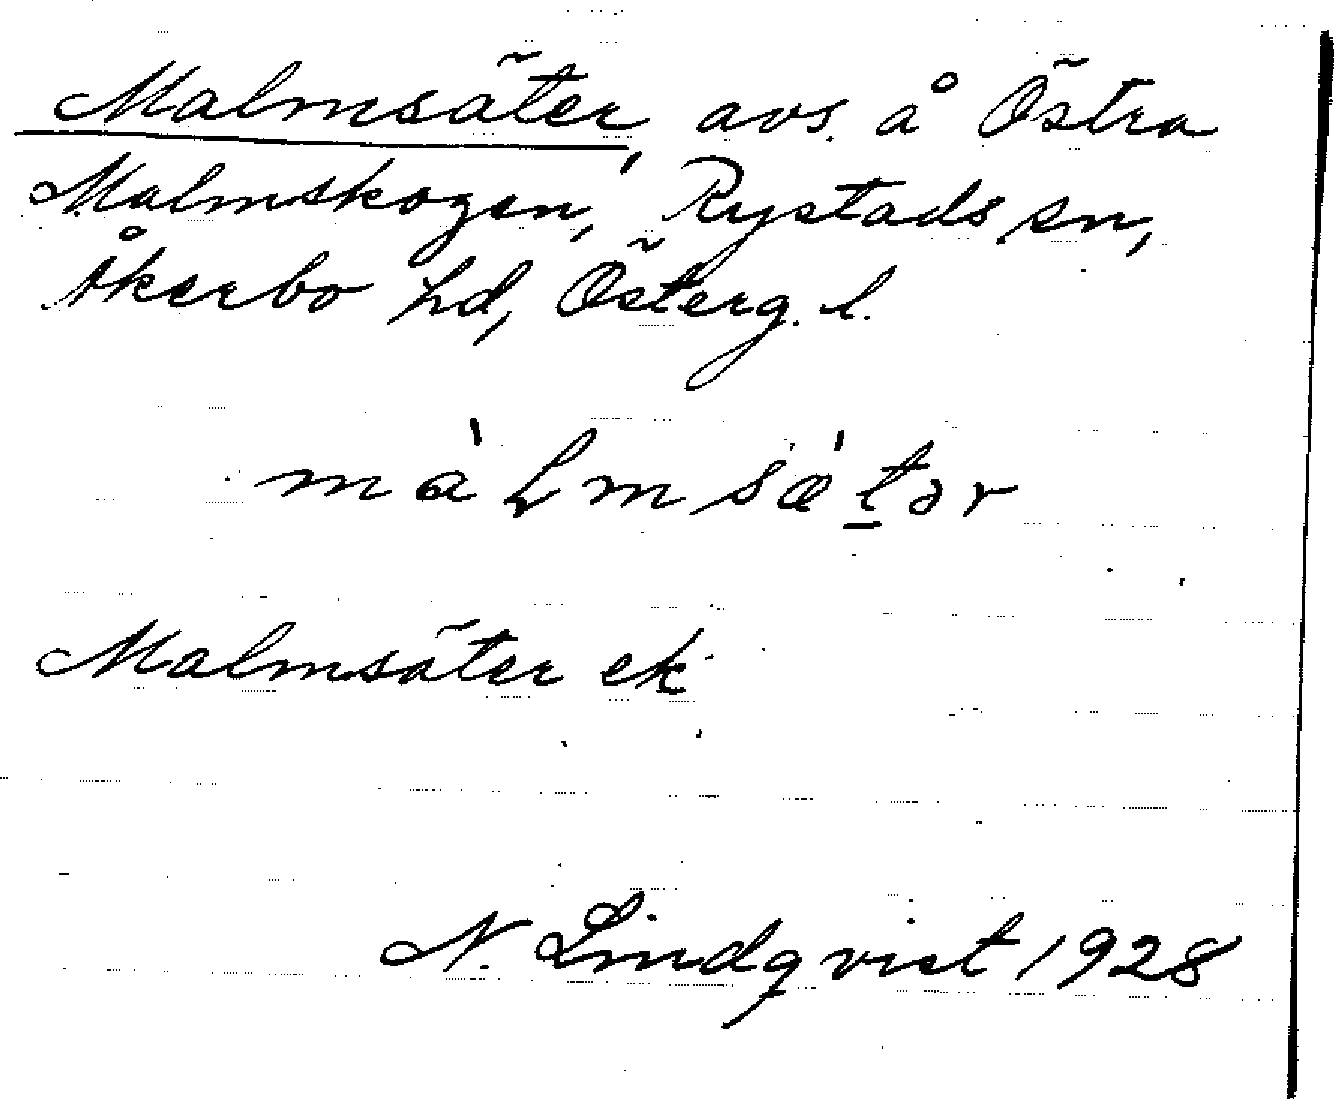 Malmsäter, avs. å Östra
Malmskogen, Rystads sn,
Åkerbo hd, Österg. l.
màLmsæ'tər
Malmsäter ek
N. Lindqvist 1928